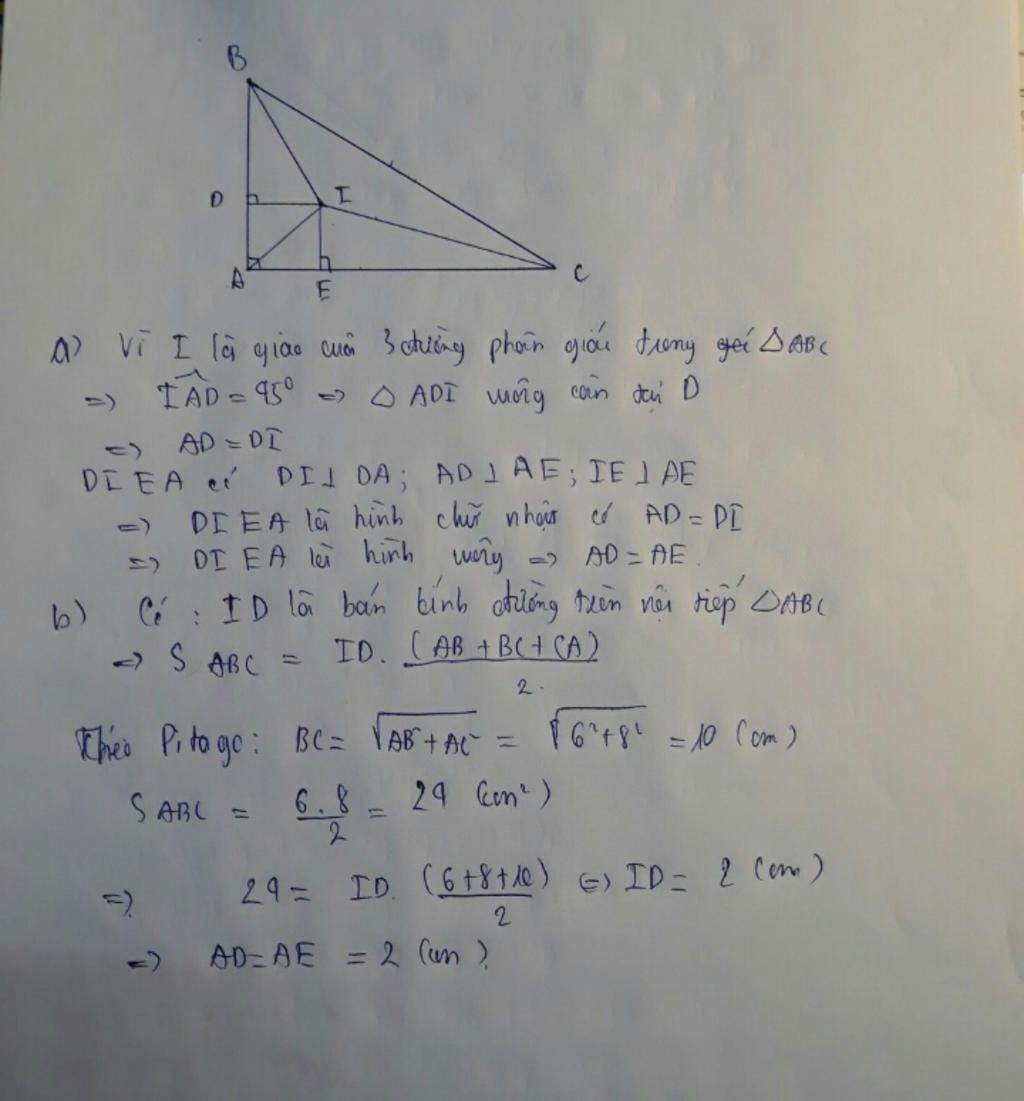 B
D
I
A
E
C
a) Vì I là giao của 3 đường phân giác trong ΔABC
=> IAD = 45° => Δ ADI vuông cân tại D
=> AD = DI
DIEA có DI⊥DA; AD⊥AE; IE⊥AE
=> DIEA là hình chữ nhật có AD = DI
=> DIEA là hình vuông => AD = AE.
b) Có : ID là bán kính đường tròn nội tiếp ΔABC
=> S ABC = ID. (AB + BC + CA)
2.
Theo Pitago: BC = √AB² + AC² = √6²+8² = 10 (cm)
S ABC = 6.8/2 = 24 (cm²)
=> 24 = ID. (6+8+10)/2 <=> ID = 2 (cm)
=> AD = AE = 2 (cm).